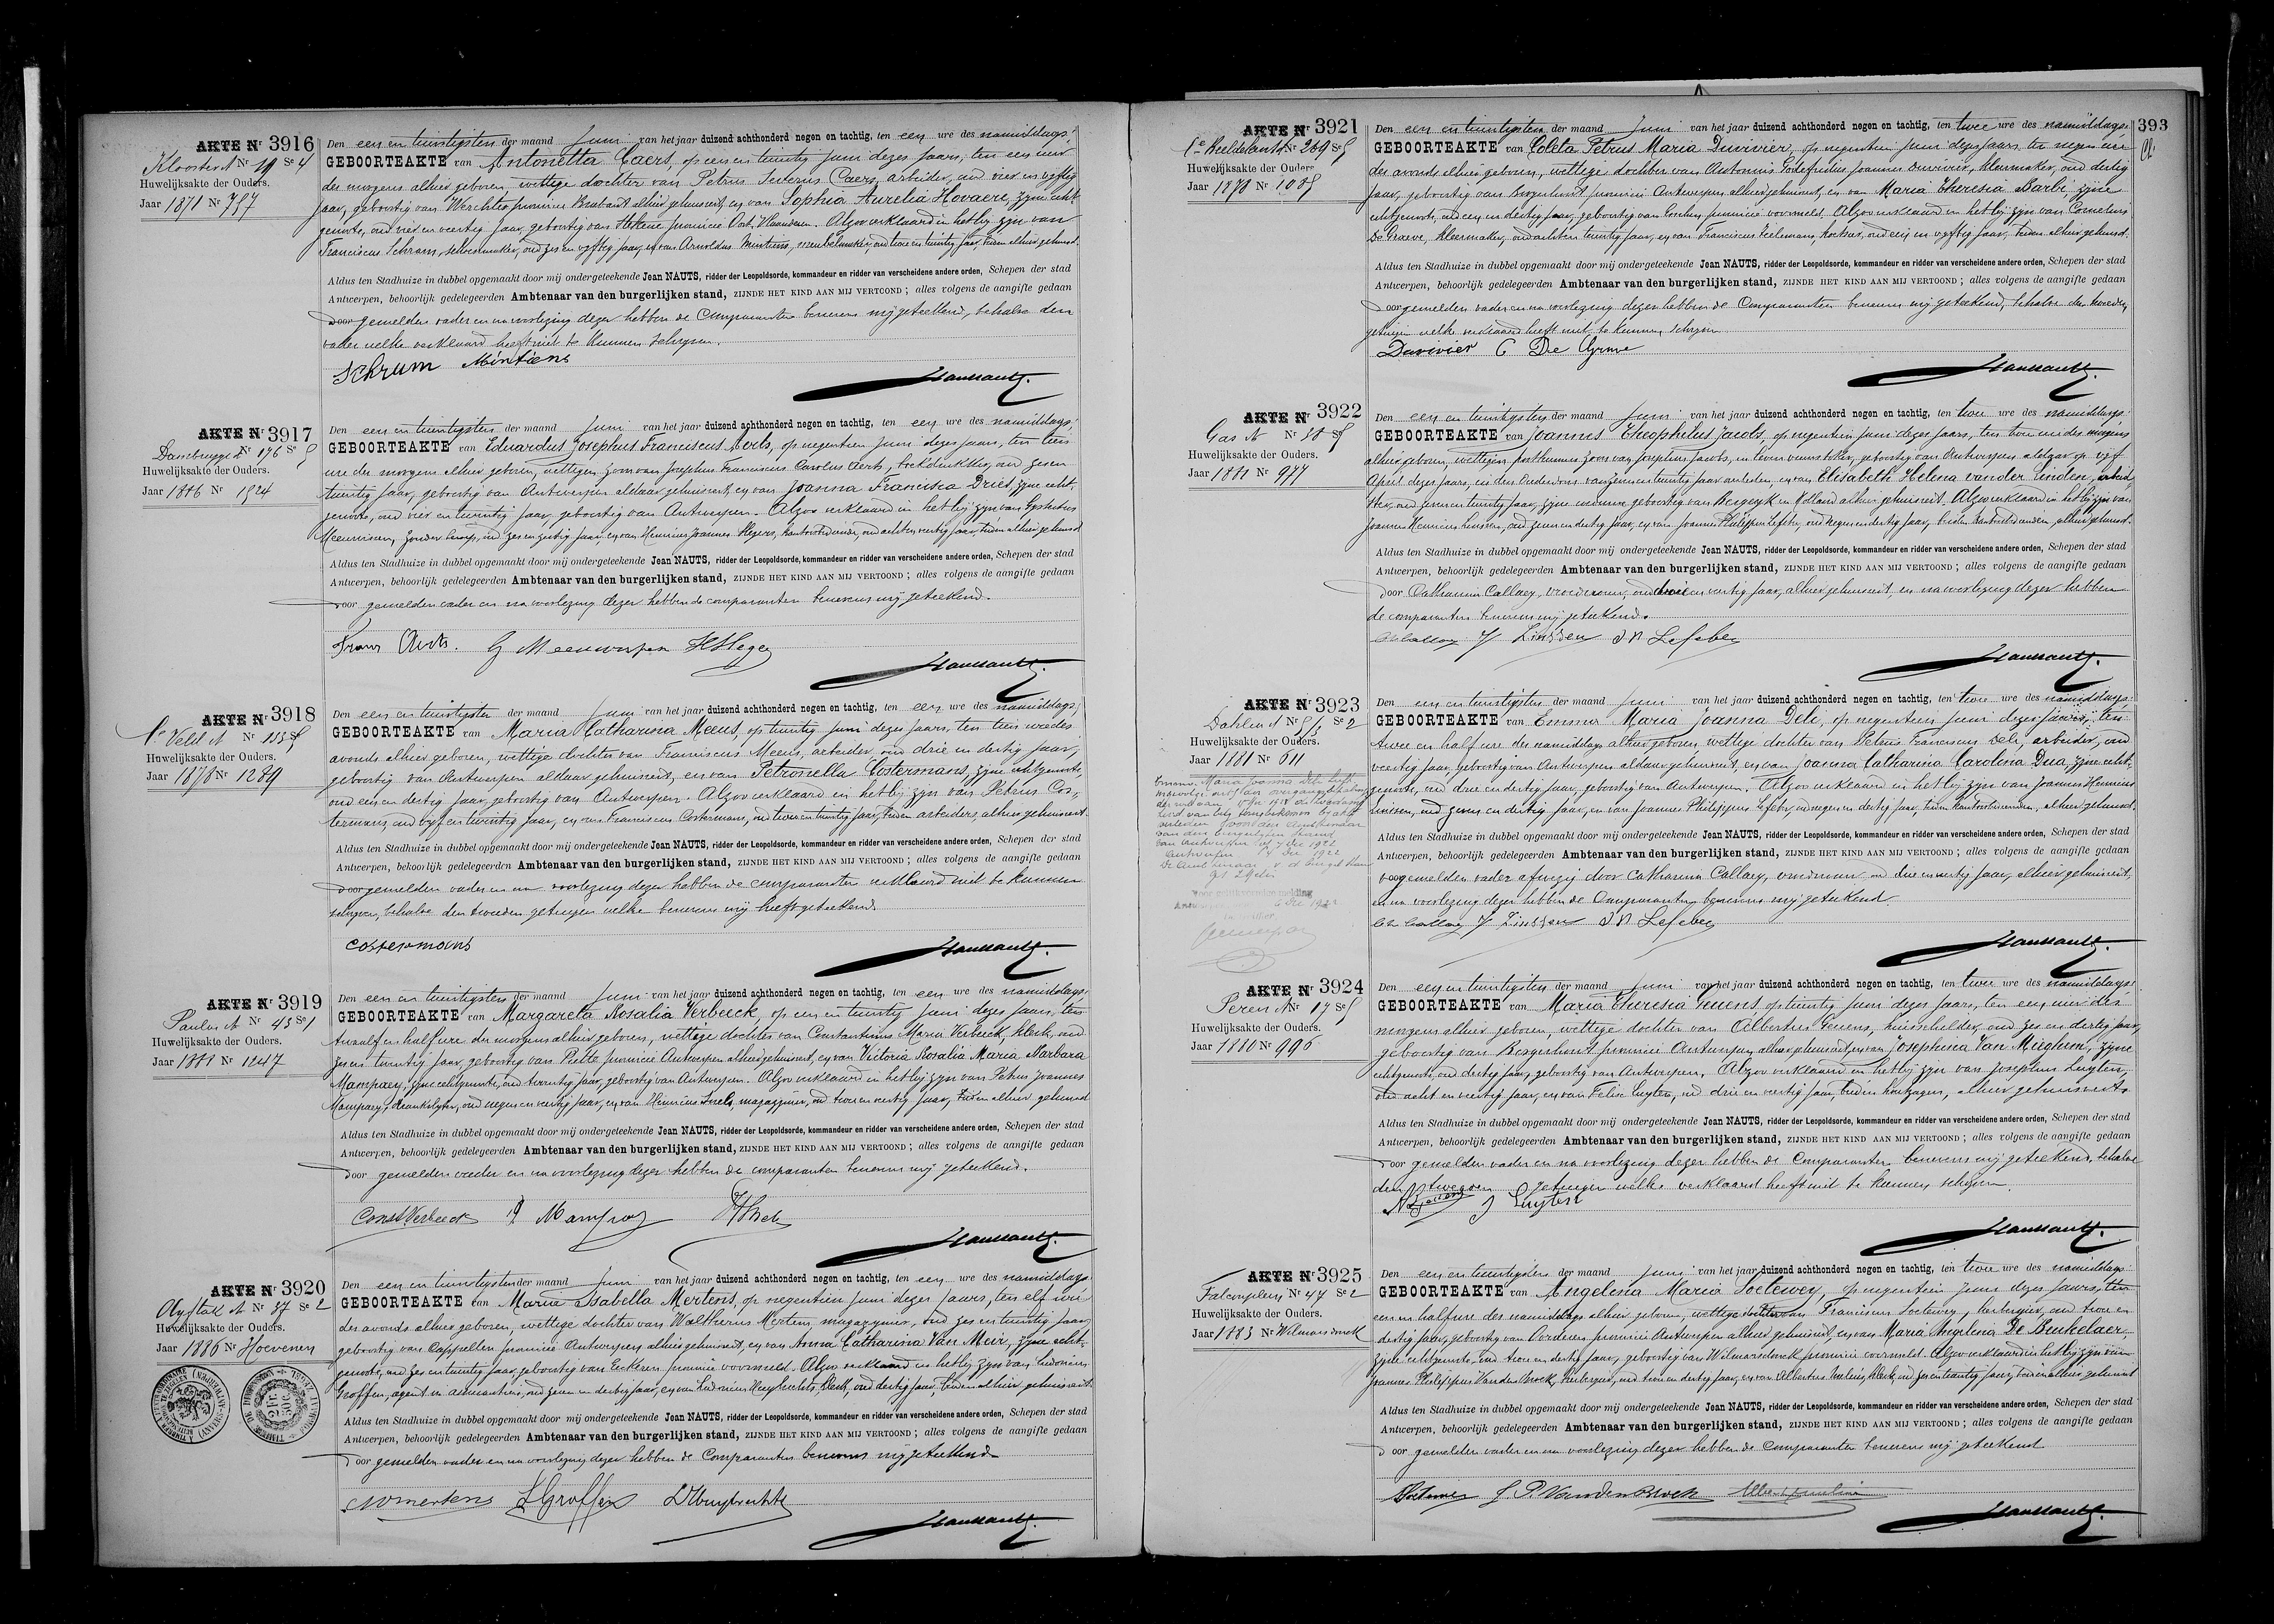 AKTE Nr 3916
Kloosterst Nr 19 Sie 4
Huwelijksakte der Ouders.
Jaar 1871 Nr 757
Den een en twintigsten der maand Juni van het jaar duizend achthonderd negen en tachtig, ten een ure des namiddags:
GEBOORTEAKTE van Antonetta Caers, op een en twintig Juni dezes jaars, ten een ure
des morgens alhier geboren, wettige dochter van Petrus Caers, arbeider, oud vier en vyftig
jaar, geboortig van Werchter provincie Brabant alhier gehuisvest, en van Sophia Aurelia Hovaere, zyne echt-
genoote, oud vier en veertig jaar, geboortig van provincie Oost-Vlaanderen. Alzoo verklaard in het by zyn van
Franciscus Schram, schoenmaker, oud zes en vyftig jaar, en van Arnoldus Mintiens, meubelmaker, oud twee en twintig jaar, beiden alhier gehuisvest.
Aldus ten Stadhuize in dubbel opgemaakt door mij ondergeteekende Jean NAUTS, ridder der Leopoldsorde, kommandeur en ridder van verscheidene andere orden, Schepen der stad
Antwerpen, behoorlijk gedelegeerden Ambtenaar van den burgerlijken stand, ZIJNDE HET KIND AAN MIJ VERTOOND; alles volgens de aangifte gedaan
door gemelden vader en na voorlezing dezer hebben de Comparanten benevens my geteekend, behalve den
vader welke verklaard heeft niet te kunnen schryven.
Schram Mintiens
AKTE Nr 3917
Dambrugge st Nr 176 Sie 5
Huwelijksakte der Ouders.
Jaar 1886 Nr 1524
Den een en twintigsten der maand Juni van het jaar duizend achthonderd negen en tachtig, ten een ure des namiddags;
GEBOORTEAKTE van Eduardus Josephus Franciscus Aerts, op negentien Juni dezes jaars, ten tien
ure des morgens alhier geboren, wettigen zoon van Josephus Franciscus Carolus Aerts, boekdrukker, oud zes en
twintig jaar, geboortig van Antwerpen aldaar gehuisvest, en van Joanna Francisca Dries, zyne echt-
genoote, oud vier en twintig jaar, geboortig van Antwerpen. Alzoo verklaard in het by zyn van
zonder beroep, oud zes en zestig jaar, en van Henricus Joannes Hegers, kantoorbediende, oud acht en veertig jaar, beiden alhier gehuisvest
Aldus ten Stadhuize in dubbel opgemaakt door mij ondergeteekende Jean NAUTS, ridder der Leopoldsorde, kommandeur en ridder van verscheidene andere orden, Schepen der stad
Antwerpen, behoorlijk gedelegeerden Ambtenaar van den burgerlijken stand, ZIJNDE HET KIND AAN MIJ VERTOOND; alles volgens de aangifte gedaan
door gemelden vader en na voorlezing dezer hebben de comparanten benevens my geteekend.
Frans Aerts.
AKTE Nr 3918
le Veld st Nr 153 Sie 5
Huwelijksakte der Ouders.
Jaar 1878 Nr 1289
Den een en twintigsten der maand Juni van het jaar duizend achthonderd negen en tachtig, ten een ure des namiddags;
GEBOORTEAKTE van Maria Catharina Meeus, op twintig juni dezes jaars, ten tien ure des
avonds alhier geboren, wettige dochter van Franciscus Meeus, arbeider, oud drie en dertig jaar,
geboortig van Antwerpen aldaar gehuisvest, en van Petronella Costermans, zyne echtgenoote,
oud een en dertig jaar, geboortig van Antwerpen. Alzoo verklaard in het by zyn van Petrus Cos-
termans, oud vyf en twintig jaar, en van Franciscus Costermans, oud twee en twintig jaar, beiden arbeiders, alhier gehuisvest.
Aldus ten Stadhuize in dubbel opgemaakt door mij ondergeteekende Jean NAUTS, ridder der Leopoldsorde, kommandeur en ridder van verscheidene andere orden, Schepen der stad
Antwerpen, behoorlijk gedelegeerden Ambtenaar van den burgerlijken stand, ZIJNDE HET KIND AAN MIJ VERTOOND; alles volgens de aangifte gedaan
door gemelden vader en na voorlezing dezer hebben de comparanten verklaard niet te kunnen
schryven, behalve den tweeden getuigen welke benevens my heeft geteekend.
Costermans
AKTE Nr 3919
Paulus st Nr 43 Sie 1
Huwelijksakte der Ouders.
Jaar 1888 Nr 1247
Den een en twintigsten der maand Juni van het jaar duizend achthonderd negen en tachtig, ten een ure des namiddags:
GEBOORTEAKTE van Margareta Rosalia Verbeeck, op een en twintig juni dezes jaars, ten
twaalf en half ure des morgens alhier geboren, wettige dochter van Constantinus Maria Verbeeck, klerk, oud
zes en twintig jaar, geboortig van Putte provincie Antwerpen alhier gehuisvest, en van Victoria Rosalia Maria Barbara
Mampaey, zyne echtgenoote, oud twintig jaar, geboortig van Antwerpen. Alzoo verklaard in het by zyn van Petrus Joannes
Mampaey, drankslyter, oud negen en veertig jaar, en van Henricus magazynier, oud twee en veertig jaar, beiden alhier gehuisvest
Aldus ten Stadhuize in dubbel opgemaakt door mij ondergeteekende Jean NAUTS, ridder der Leopoldsorde, kommandeur en ridder van verscheidene andere orden, Schepen der stad
Antwerpen, behoorlijk gedelegeerden Ambtenaar van den burgerlijken stand, ZIJNDE HET KIND AAN MIJ VERTOOND; alles volgens de aangifte gedaan
door gemelden vader en na voorlezing dezer hebben de comparanten benevens my geteekend.
Const Verbeeck P Mampaey
AKTE Nr 3920
Nr 37 Sie 2
Huwelijksakte der Ouders.
Jaar 1886 Nr Hoevenen
Den een en twintigsten der maand Juni van het jaar duizend achthonderd negen en tachtig, ten een ure des namiddags:
GEBOORTEAKTE van Maria Isabella Mertens, op negentien Juni dezes jaars, ten elf ure
des avonds alhier geboren, wettige dochter van Waltherus Mertens, magazynier, oud zes en twintig jaar,
geboortig van Cappellen provincie Antwerpen alhier gehuisvest, en van Anna Catharina Van Meir, zyne echt-
genoote, oud zes en twintig jaar, geboortig van Eeckeren provincie voormeld. Alzoo verklaard in het by zyn van Ludovicus
Groffen, agent in oud zeven en dertig jaar, en van Ludovicus Huybrechts, klerk, oud dertig jaar, beiden alhier gehuisvest
Aldus ten Stadhuize in dubbel opgemaakt door mij ondergeteekende Jean NAUTS, ridder der Leopoldsorde, kommandeur en ridder van verscheidene andere orden, Schepen der stad
Antwerpen, behoorlijk gedelegeerden Ambtenaar van den burgerlijken stand, ZIJNDE HET KIND AAN MIJ VERTOOND; alles volgens de aangifte gedaan
door gemelden vader en na voorlezing dezer hebben de Comparanten benevens my geteekend
Mertens LGroffen LHuybrechts
TIMBRE DE DIMENSION
2 Fr. 50 C.
393
AKTE Nr 3921
Nr 269 Sie 5
Huwelijksakte der Ouders
Jaar 1878 Nr 1085
Den een en twintigsten der maand Juni van het jaar duizend achthonderd negen en tachtig, ten twee ure des namiddags:
GEBOORTEAKTE van Coleta Petrus Maria Duvivier, op negentien juni dezes jaars, ten negen ure
des avonds alhier geboren, wettige dochter van Antonius Godefridus Joannes Duvivier, kleermaker, oud dertig
jaar, geboortig van Borgerhout provincie Antwerpen, alhier gehuisvest, en van Maria Theresia Barbé, zyne
echtgenoote, oud een en dertig jaar, geboortig van provincie voormeld. Alzoo verklaard in het by zyn van Cornelius
De Graeve, kleermaker, oud acht en twintig jaar, en van Franciscus oud een en vyftig jaar, beiden alhier gehuisvest.
Aldus ten Stadhuize in dubbel opgemaakt door mij ondergeteekende Jean NAUTS, ridder der Leopoldsorde, kommandeur en ridder van verscheidene andere orden, Schepen der stad
Antwerpen, behoorlijk gedelegeerden Ambtenaar van den burgerlijken stand, ZIJNDE HET KIND AAN MIJ VERTOOND; alles volgens de aangifte gedaan
door gemelden vader en na voorlezing dezer hebben de Comparanten benevens my geteekend, behalve den tweeden
getuigen welke verklaard heeft niet te kunnen schryven
Duvivier C De Grave
AKTE Nr 3922
Gas st Nr 58 Sie 5
Huwelijksakte der Ouders.
Jaar 1881 Nr 977
Den een en twintigsten der maand Juni van het jaar duizend achthonderd negen en tachtig, ten twee ure des namiddags:
GEBOORTEAKTE van Joannes Theophilus Jacobs, op negentien juni dezes jaars, ten twee ure des morgens
alhier geboren, wettigen posthumen zoon van Josephus Jacobs, in leven geboortig van Antwerpen aldaar op vyf
April dezes jaars, in den Ouderdom van en twintig jaar overleden, en van Elisabeth Helena van der Linden, arbeid-
ster, oud zeven en twintig jaar, zyne weduwe geboortig van Bergeyk in Holland alhier gehuisvest. Alzoo verklaard in het by zyn van
Joannes Henricus Linssen, oud zeven en dertig jaar, en van Joannes Philippus Lefeber, oud negen en dertig jaar, beiden kantoorbedienden, alhier gehuisvest.
Aldus ten Stadhuize in dubbel opgemaakt door mij ondergeteekende Jean NAUTS, ridder der Leopoldsorde, kommandeur en ridder van verscheidene andere orden, Schepen der stad
Antwerpen, behoorlijk gedelegeerden Ambtenaar van den burgerlijken stand, ZIJNDE HET KIND AAN MIJ VERTOOND; alles volgens de aangifte gedaan
door Catharina Callaey, vroedvrouw, oud drie en veertig jaar, alhier gehuisvest, en na voorlezing dezer hebben
de comparanten benevens my geteekend.
Callaey J Linssen J P Lefeber
AKTE Nr 3923
Dahlia st Nr 5/3 Sie 2
Huwelijksakte der Ouders.
Jaar 1881 Nr 611
Emma Maria Joanna Dele heeft
van den burgerlyken stand
van Antwerpen tot 7 dec 1922
Antwerpen Dec 1922
Den een en twintigsten der maand Juni van het jaar duizend achthonderd negen en tachtig, ten twee ure des namiddags:
GEBOORTEAKTE van Emma Maria Joanna Dele, op negentien juni dezes jaars, ten
twee en half ure des namiddags alhier geboren, wettige dochter van Petrus Franciscus Dele, arbeider, oud
veertig jaar, geboortig van Antwerpen aldaar gehuisvest, en van Joanna Catharina Carolina Dua, zyne echt-
genoote, oud drie en dertig jaar, geboortig van Antwerpen. Alzoo verklaard in het by zyn van Joannes Henricus
Linssen, oud zeven en dertig jaar, en van Joannes Philippus Lefeber, oud negen en dertig jaar, beiden kantoorbedienden, alhier gehuisvest.
Aldus ten Stadhuize in dubbel opgemaakt door mij ondergeteekende Jean NAUTS, ridder der Leopoldsorde, kommandeur en ridder van verscheidene andere orden, Schepen der stad
Antwerpen, behoorlijk gedelegeerden Ambtenaar van den burgerlijken stand, ZIJNDE HET KIND AAN MIJ VERTOOND; alles volgens de aangifte gedaan
voor gemelden vader afwezig door Catharina Callaey, vroedvrouw, oud drie en veertig jaar, alhier gehuisvest,
en na voorlezing dezer hebben de Comparanten benevens my geteekend.
Callaey J Linssen J P Lefeber
AKTE Nr 3924
Peren st Nr 17 Sie 5
Huwelijksakte der Ouders.
Jaar 1880 Nr 996
Den een en twintigsten der maand Juni van het jaar duizend achthonderd negen en tachtig, ten twee ure des namiddags:
GEBOORTEAKTE van Maria Theresia op twintig Juni dezes jaars, ten een ure des
morgens alhier geboren, wettige dochter van Albertus huisschilder, oud zes en dertig jaar,
geboortig van Borgerhout provincie Antwerpen, alhier gehuisvest, en van Josephina Van Mieghem, zyne
echtgenoote, oud dertig jaar, geboortig van Antwerpen. Alzoo verklaard in het by zyn van Josephus Luyten,
oud acht en veertig jaar, en van Felix Luyten, oud drie en veertig jaar, beiden houtzagers, alhier gehuisvest.
Aldus ten Stadhuize in dubbel opgemaakt door mij ondergeteekende Jean NAUTS, ridder der Leopoldsorde, kommandeur en ridder van verscheidene andere orden, Schepen der stad
Antwerpen, behoorlijk gedelegeerden Ambtenaar van den burgerlijken stand, ZIJNDE HET KIND AAN MIJ VERTOOND; alles volgens de aangifte gedaan
door gemelden vader en na voorlezing dezer hebben de Comparanten benevens my geteekend, behalve
den tweeden getuigen welke verklaard heeft niet te kunnen schryven.
J Luyten
AKTE Nr 3925
Falconplein Nr 47 Sie 2
Huwelijksakte der Ouders.
Jaar 1883 Nr Wilmarsdonck
Den een en twintigsten der maand Juni van het jaar duizend achthonderd negen en tachtig, ten twee ure des namiddags:
GEBOORTEAKTE van Angelina Maria Soetewey, op negentien Juni dezes jaars, ten
een en half ure des namiddags alhier geboren, wettige dochter van Franciscus Soetewey, herbergier, oud twee en
dertig jaar, geboortig van Oorderen provincie Antwerpen alhier gehuisvest, en van Maria Angelina De Beukelaer,
zyne echtgenoote, oud twee en dertig jaar, geboortig van Wilmarsdonck provincie voormeld. Alzoo verklaard in het by zyn van
Joannes Philippus Van den Broeck, herbergier, oud twee en dertig jaar, en van Albertus klerk, oud zes en twintig jaar, beiden alhier gehuisvest
Aldus ten Stadhuize in dubbel opgemaakt door mij ondergeteekende Jean NAUTS, ridder der Leopoldsorde, kommandeur en ridder van verscheidene andere orden, Schepen der stad
Antwerpen, behoorlijk gedelegeerden Ambtenaar van den burgerlijken stand, ZIJNDE HET KIND AAN MIJ VERTOOND; alles volgens de aangifte gedaan
door gemelden vader en na voorlezing dezer hebben de Comparanten benevens my geteekend
J. P. Vanden Broeck